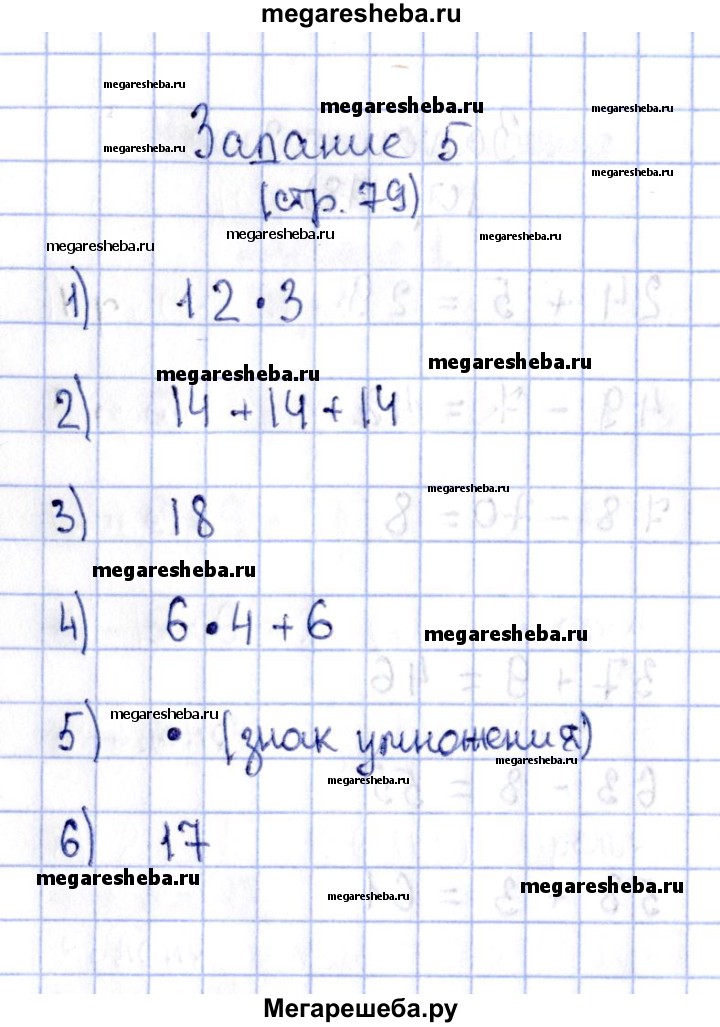 megaresheba.ru
megaresheba.ru
megaresheba.ru megaresheba.ru
Задание 5
megaresheba.ru
megaresheba.ru
(стр. 79)
megaresheba.ru megaresheba.ru megaresheba.ru
1) 12 • 3
megaresheba.ru megaresheba.ru
2) 14 + 14 + 14
megaresheba.ru
3) 18
megaresheba.ru
4) 6 • 4 + 6
megaresheba.ru
megaresheba.ru
5) • (знак умножения)
megaresheba.ru
megaresheba.ru
6) 17
megaresheba.ru megaresheba.ru
megaresheba.ru
Мегарешеба.ру